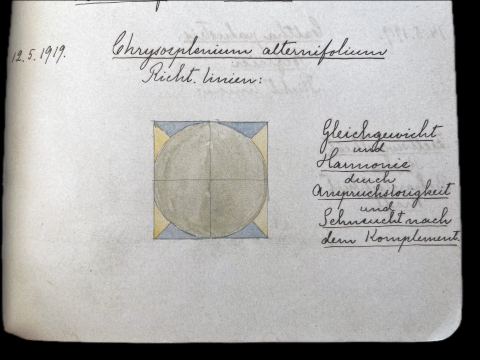 12.5.1919.
Chrysosplenium alternifolium
Richt. linien:
Gleichgewicht
und
Harmonie
durch
Anspruchslosigkeit
und
Sehnsucht nach
dem Komplement.